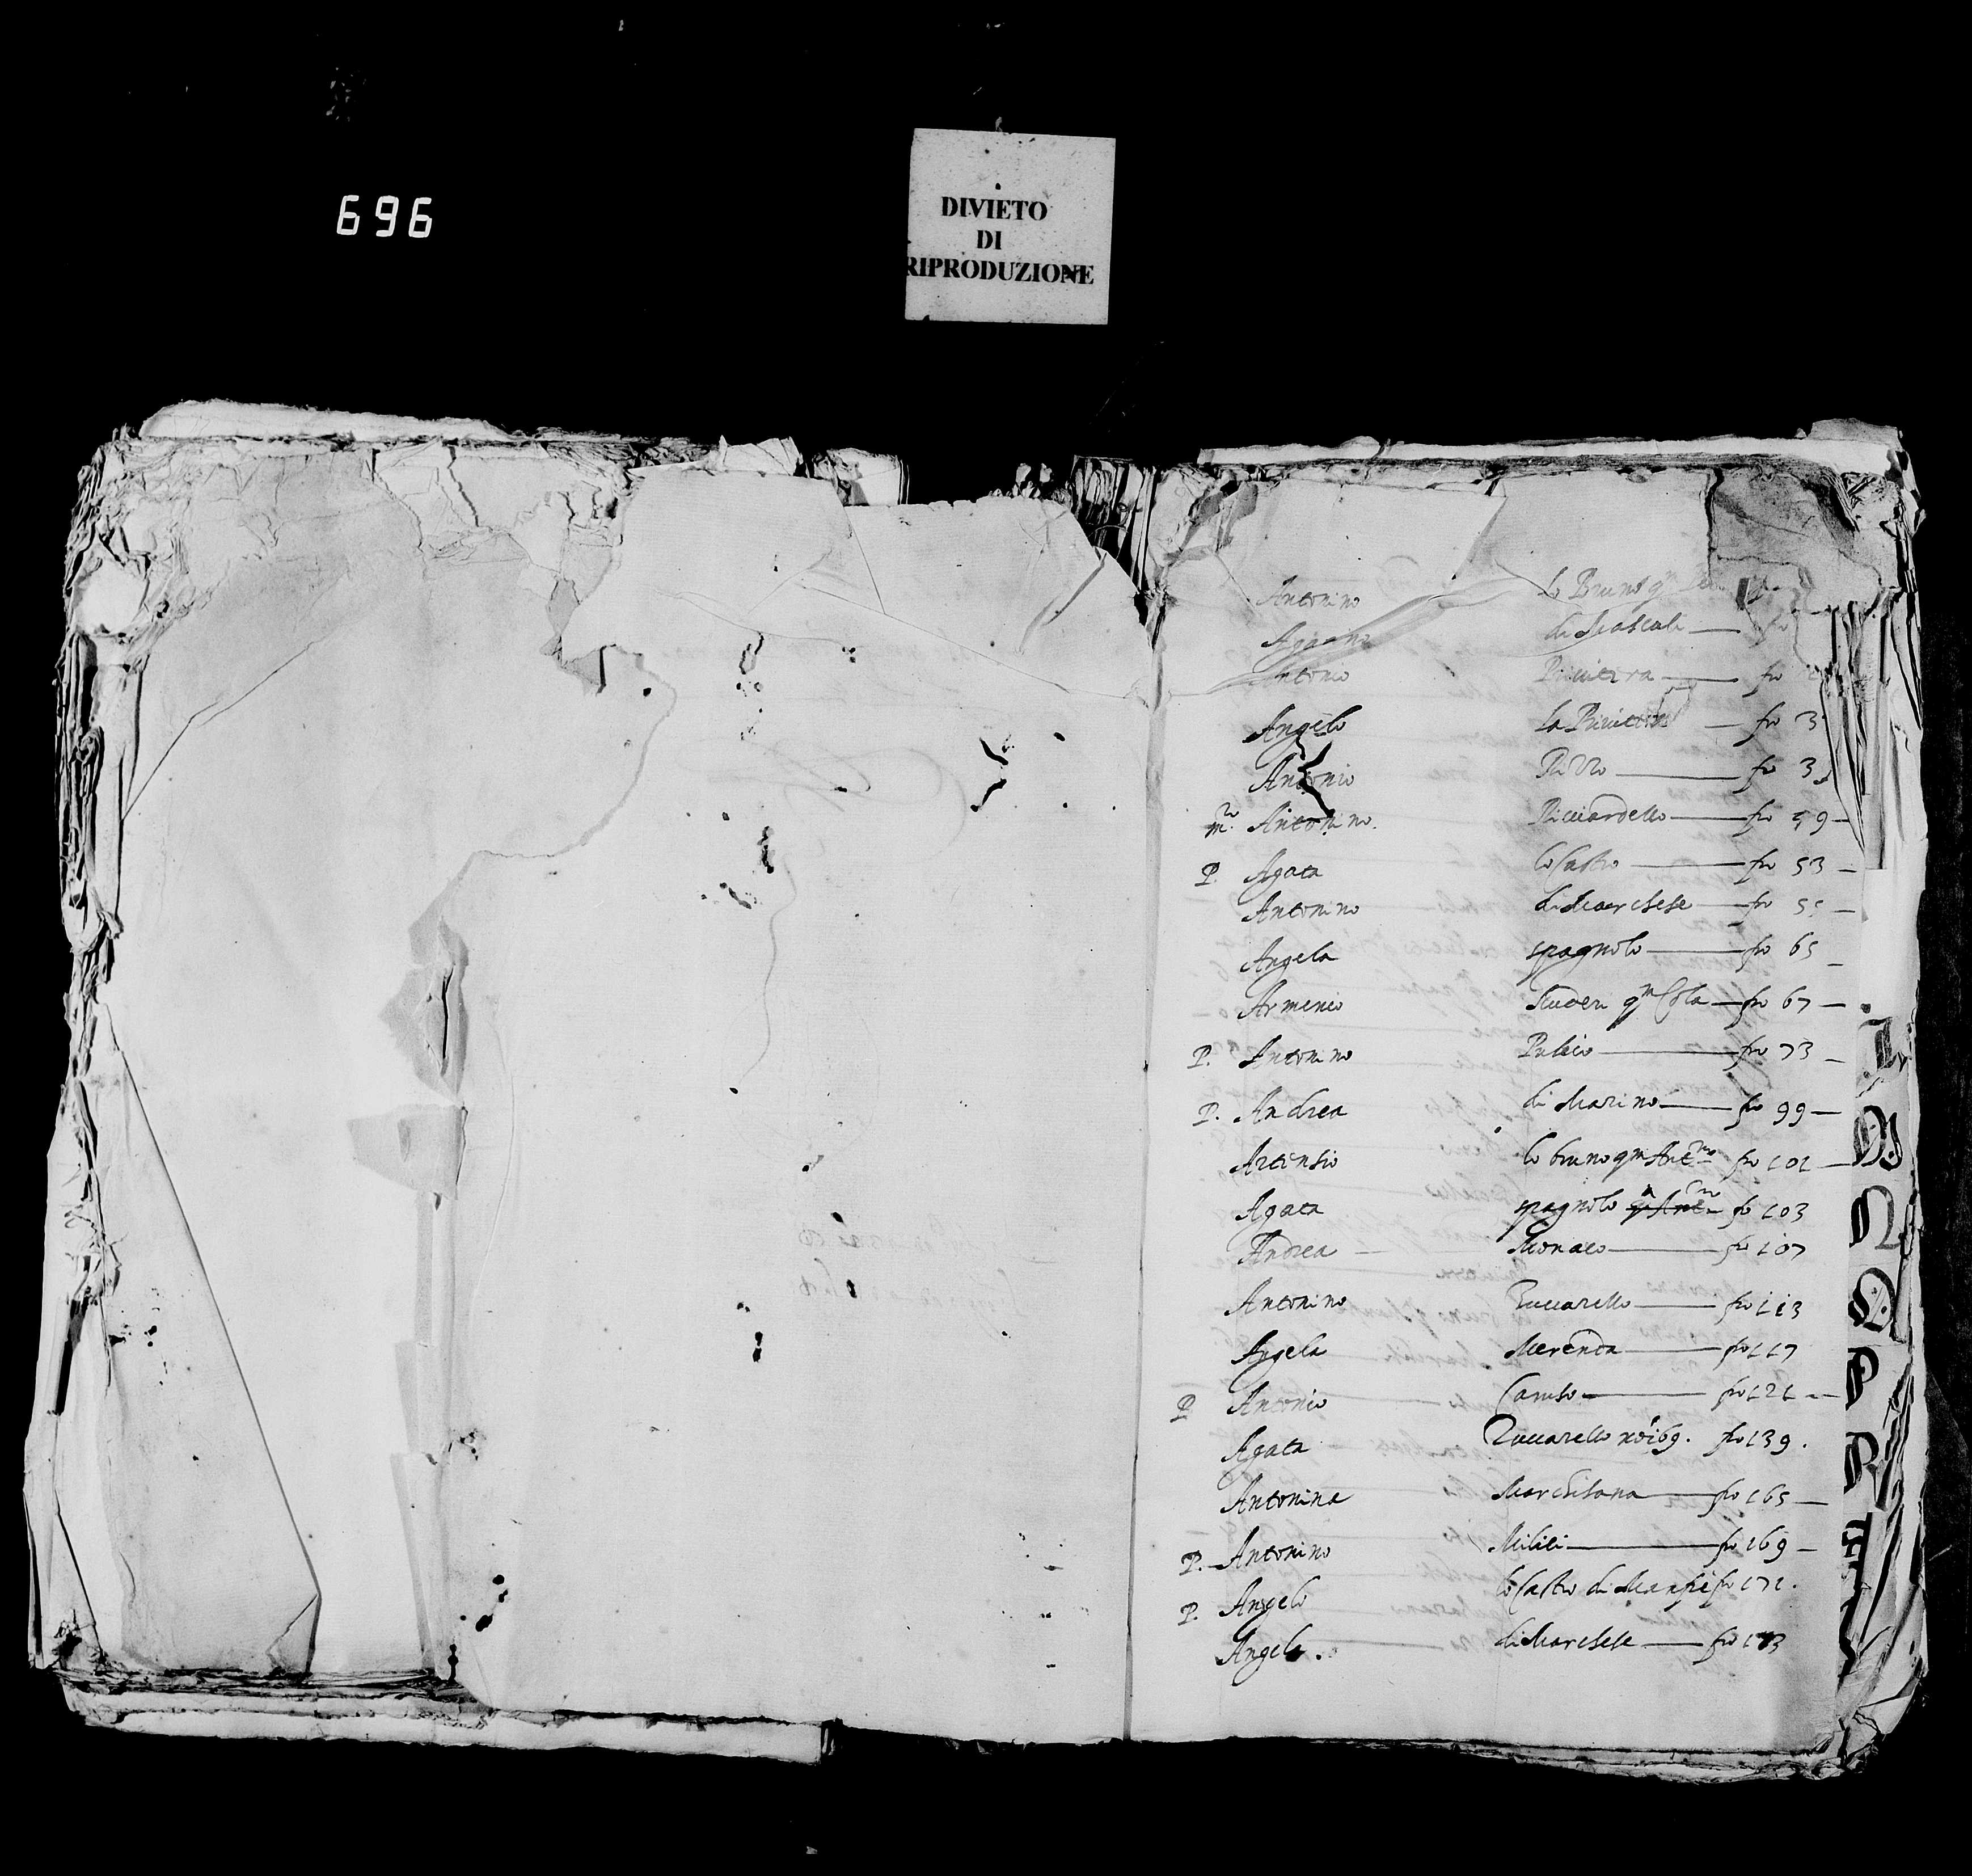 696
DIVIETO
DI
RIPRODUZIONE
Antonino lo Bruno qm
di Mascali fo
Antonio fo
Angelo fo 3
Antonio Rizzo fo 3
mro Antonino Ricciardello fo 49
P. Agata lo Castro fo 53
Antonino di Marchese fo 55
Angela spagnolo fo 65
Armenio Scuderi qm Cola fo 67
P. Antonino fo 73
P. Andrea di Marino fo 99
Artensio lo bruno qm Antno fo 101
Agata spagnolo fo 103
Andrea Monaco fo 107
Antonino Zuccarello fo 113
Angela Merenda fo 117
P Antonio Caruso fo 121
Agata Zuccarello no 169. fo 139.
Antonina Marchisana fo 165
P. Antonino Milici fo 169
P. Angelo lo Castro di fo 171.
Angelo di Marchese fo 173
L
M
N
O
P
R